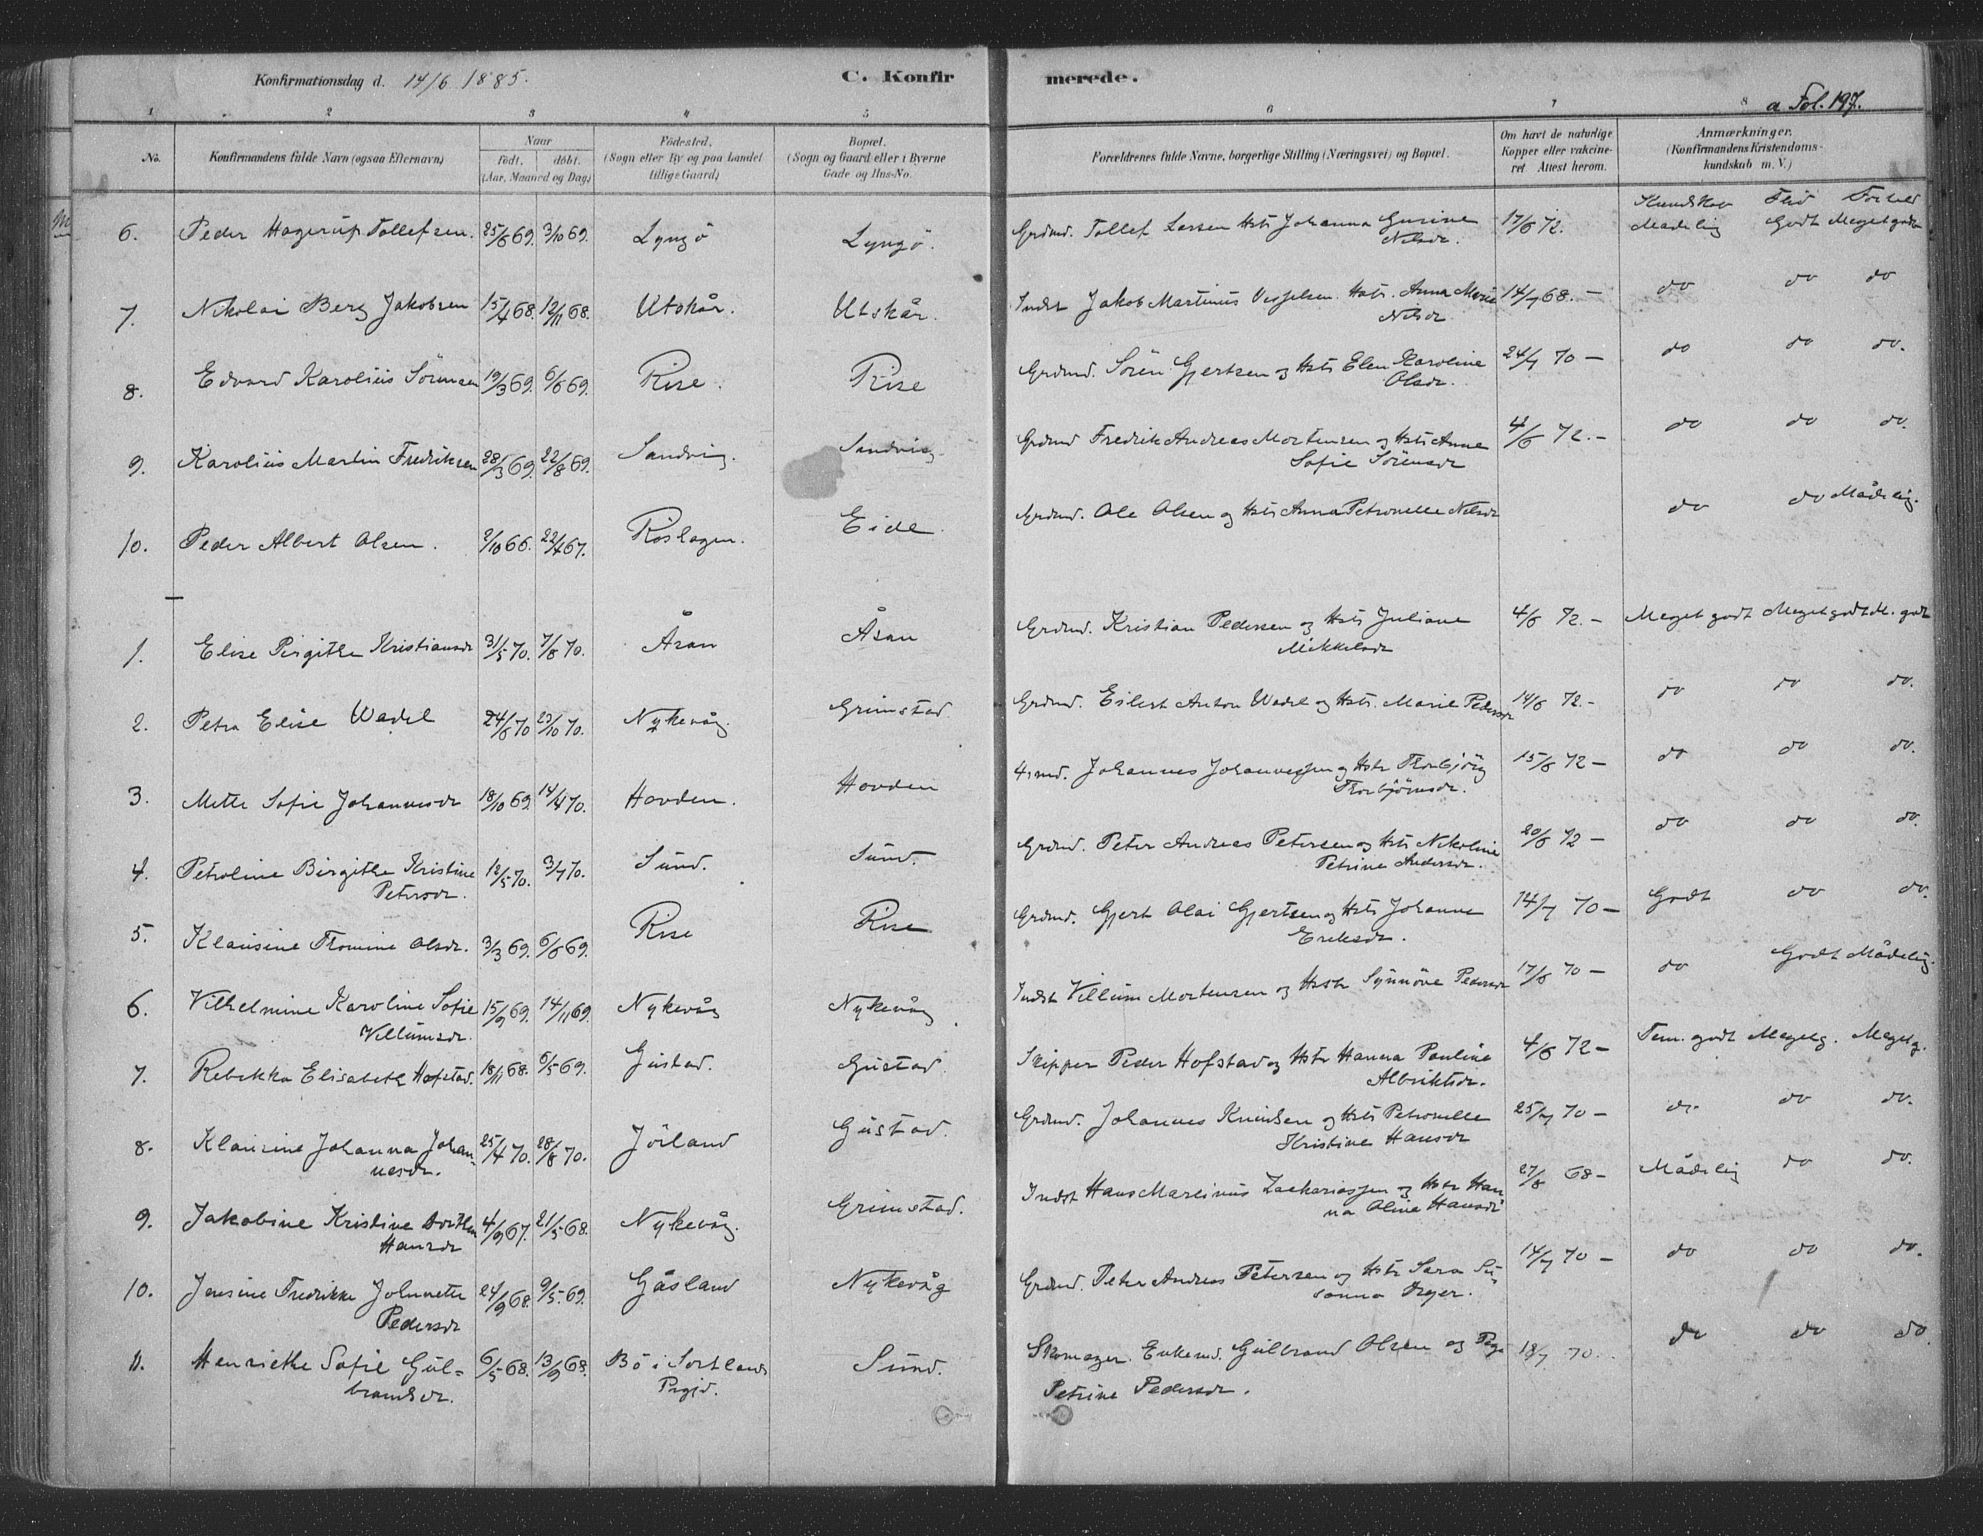 Konfirmationsdag d. 14/6 1885. C. Konfirmerede. a Fol. 197.
1 2 3 4 5 6 7 8
No. Konfirmandens fulde Navn (ogsaa Efternavn) Naar født, døbt. (Aar, Maaned og Dag.) Fødested, (Sogn eller By og paa Landet tillige Gaard) Bopæl. (Sogn og Gaard eller i Byerne Gade og Hus-No. Forældrenes fulde Navne, borgerlige Stilling (Næringsvei) og Bopæl. Om havt de naturlige Kopper eller vakcineret Attest herom. Anmærkninger. (Konfirmandens Kristendomskundskab m. V.)
Kundskab Flid Forhold
6. Peder Hagerup Tollefsen. 25/6 69. 3/10 69. Lyngö Lyngö. Grdmd. Tollef Larsen Hstr Johanna Gurine Nilsdr. 17/6 72. Maadelig Godt Meget godt
7. Nikolai Berg Jakobsen 15/4 68. 12/11 68. Utskår. Utskår. Indst Jakob Martinus Hstr. Anna Marie Nilsdr 14/7 68. — do do do
8. Edvard Karolius Sörensen 19/3 69. 6/6 69. Rise. Rise Grdmd. Sören Gjertsen og Hstr Elen Karoline Olsdr. 24/7 70 — do do do.
9. Karolius Martin Fredriksen 28/3 69. 22/8 69. Sandvig. Sandvig Grdmd Fredrik Andreas Mortensen og Hstr Anne Sofie Sörensdr 4/6 72. — do do do.
10. Peder Albert Olsen. 2/10 66. 22/4 67. Röslagen. Eide Grdmd. Ole Olsen og Hstr Anna Petronelle Nilsdr do do Mådelig.
1. Elise Birgithe Kristiansdr 31/5 70. 7/8 70. Åsan Åsan Grdmd. Kristian Pedersen og Hstr Juliane Mikkelsdr 4/6 72. — Meget godt Meget godt M. godt
2. Petra Elise Wadel 24/6 70 23/10 70. Nykevåg. Grimstad Grdmd. Eilert Anton Wadel og Hstr. Marie Pedersdr 14/6 72. — do do do.
3. Mette Sofie Johannesdr 18/10 69. 14/4 70. Hovden. Hovden Hsmd. Johannes Johannessen og Hstr Thorbjörg Thorbjörnsdr. 15/6 72 — do do do.
4. Petroline Birgithe Kristine Petersdr. 12/5 70. 3/7 70. Sund. Sund. Grdmd. Peter Andreas Petersen og Hstr Nikoline Petrine Andersdr. 20/6 72 — do do do.
5. Klausine Tromine Olsdr. 3/3 69. 6/6 69. Rise Rise Grdmd. Gjert Olai Gjertsen og Hstr Johanna Eriksdr. 14/7 70 — Godt do do.
6. Vilhelmine Karoline Sofie Villumsdr. 15/9 69. 14/11 69. Nykevåg Nykevåg Indst Villum Mortensen og Hstr Synnöve Pedersdr 17/6 70 — do Godt Mådelig.
7. Rebekka Elisabeth Hofstad. 18/11 68. 6/5 69. Gustad. Gustad. Skipper Peder Hofstad og Hstr Hanna Pauline Albriktsdr. 4/6 72 — Tem. godt Megetg. Megetg.
8. Klausine Johanna Johannesdr. 25/4 70. 28/8 70. Jörland Gustad. Grdmd. Johannes Knudsen og Hstr Petronelle Kristine Hansdr 25/7 70 — do. do do.
9. Jakobine Kristine Dorthea Hansdr 4/9 67. 21/5 68. Nykevåg. Grimstad. Indst Hans Martinus Zachariassen og Hstr Hanna Oline Hansdr 27/8 68 — Mådelig do do.
10. Jensine Fredrikke Johnette Pedersdr 24/9 68. 9/5 69. Gåsland Nykevåg Grdmd. Peter Andreas Petersen og Hstr Sara Susanna 14/7 70 — do do do.
11. Henriette Sofie Gulbrandsdr. 6/5 68. 13/9 68. Bö i Sortlands Prgjd. Sund. Skomager. Enkemd. Gulbrand Olsen og Pige Petrine Pedersdr. 18/7 70. do do do